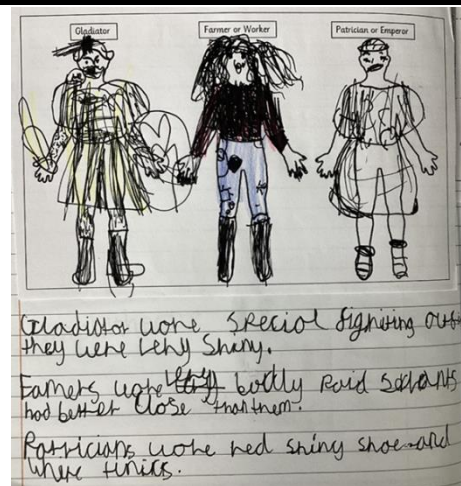 Gladiator
Farmer or Worker
Patrician or Emperor
Gladiator wore special fighting
they were very shiny.
Famers wore very badly paid servants
had better close than them.
Patricians wore red shiny shoe and
where tunics.